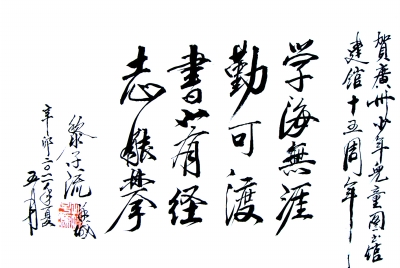 賀廣州少年兒童圖書館
建館十五周年
学海無涯
勤可渡
書山有径
志能攀
黎子流
辛卯二〇一一年夏
五月